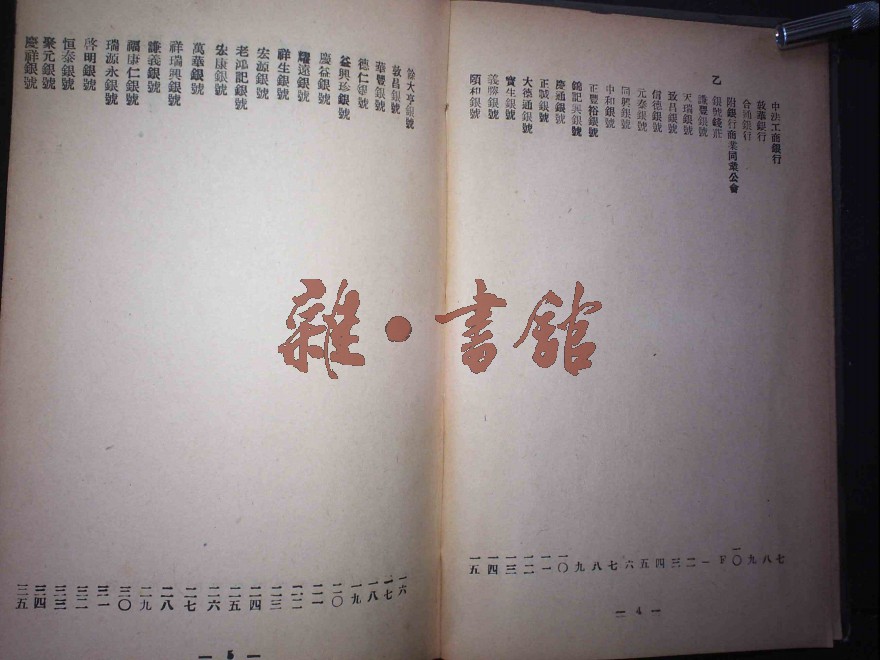 中法工商銀行 七
敦華銀行 八
合通銀行 九
附銀行商業同業公會 一〇
乙 銀號錢莊
謙豐銀號 一
天瑞銀號 二
致昌銀號 三
信德銀號 四
元泰銀號 五
同興銀號 六
中和銀號 七
正豐裕銀號 八
錦記興銀號 九
慶通銀號 一〇
正號銀號 一一
大德通銀號 一二
寶生銀號 一三
義勝銀號 一四
頤和銀號 一五
— 4 —
餘大亨銀號 一六
敦昌銀號 一七
華豐銀號 一八
德仁銀號 一九
益興珍銀號 二〇
慶益銀號 二一
耀遠銀號 二二
祥生銀號 二三
宏源銀號 二四
老鴻記銀號 二五
宏康銀號 二六
萬華銀號 二七
祥瑞興銀號 二八
謙義銀號 二九
福康仁銀號 三〇
瑞源永銀號 三一
啓明銀號 三二
恒泰銀號 三三
聚元銀號 三四
慶祥銀號 三五
— 5 —
雜·書館